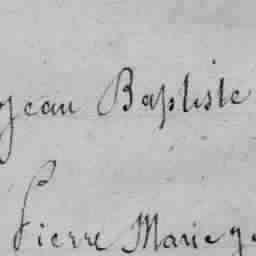 Jean Baptiste
Pierre Marie